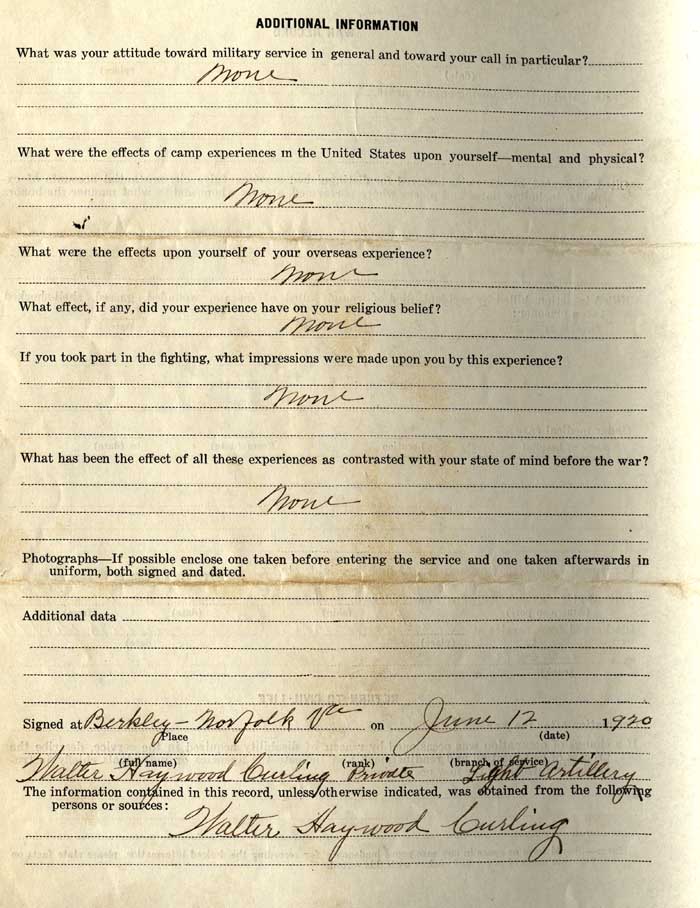 ADDITIONAL INFORMATION
What was your attitude toward military service in general and toward your call in particular?
None
What were the effects of camp experiences in the United States upon yourself—mental and physical?
None
What were the effects upon yourself of your overseas experience?
None
What effect, if any, did your experience have on your religious belief?
None
If you took part in the fighting, what impressions were made upon you by this experience?
None
What has been the effect of all these experiences as contrasted with your state of mind before the war?
None
Photographs—If possible enclose one taken before entering the service and one taken afterwards in
uniform, both signed and dated.
Additional data
Signed at Berkley - Norfolk Va on June 12 1920
Place (date)
(full name) (rank) (branch of service)
Walter Haywood Curling Private Light Artillery
The information contained in this record, unless otherwise indicated, was obtained from the following
persons or sources:
Walter Haywood Curling